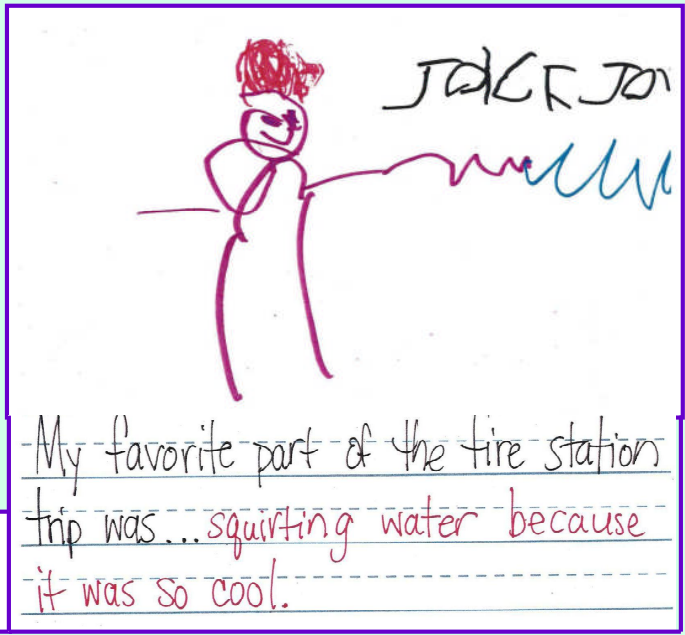 JaKE Jo
My favorite part of the fire station
trip was...squirting water because
it was so cool.